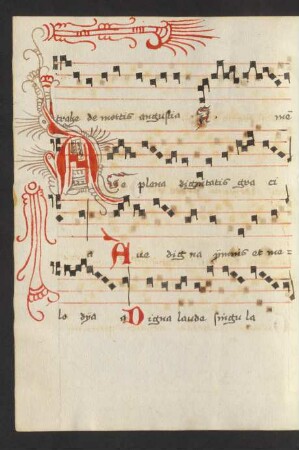 trahe de mortis angustia me
Ave plena dignitatis gra ci
a Ave digna ymnis et me
lo dya Digna laude singula